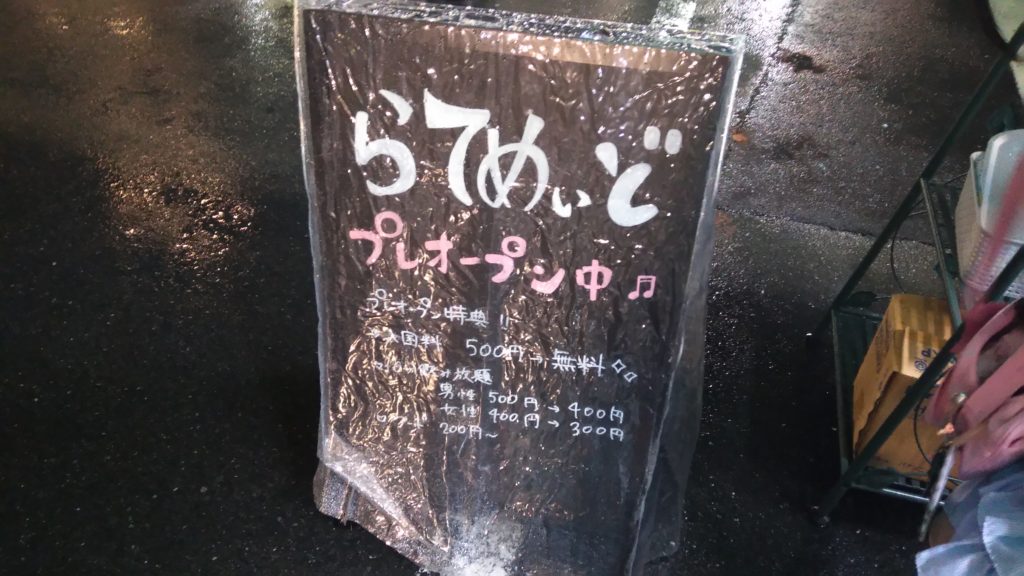 らてめいど
プレオープン中♫
プレオープン特典!!
入国料 500円→無料
飲み放題
男性 500円→400円
女性 400円→300円
200円〜